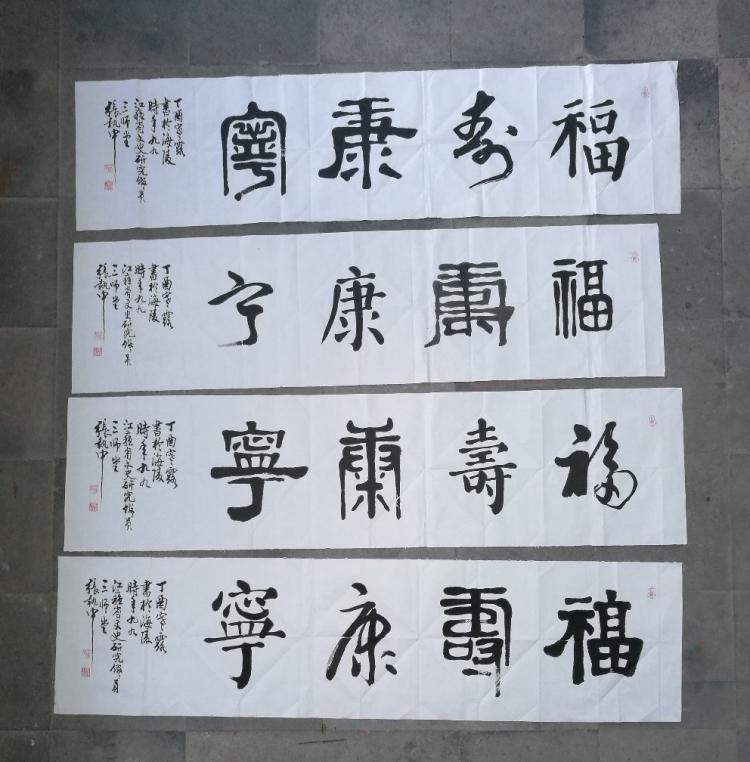 福壽康寧
丁酉寒露
書於海陵
時年九九
江蘇省文史研究館員
三師堂
張執中
福壽康宁
丁酉寒露
書於海陵
時年九九
江蘇省文史研究館員
三師堂
張執中
福壽康寧
丁酉寒露
書於海陵
時年九九
江蘇省文史研究館員
三師堂
張執中
福壽康寧
丁酉寒露
書於海陵
時年九九
江蘇省文史研究館員
三師堂
張執中